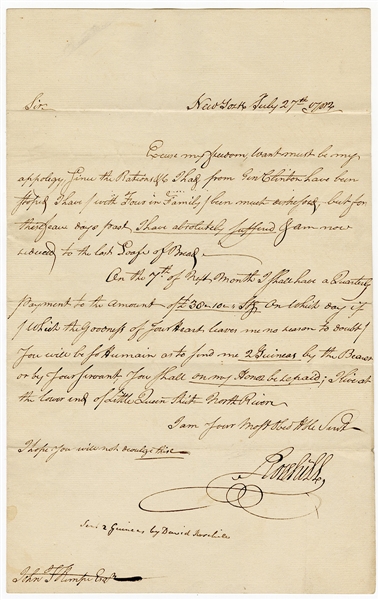 Sir
New York July 27th 1783
Excuse my freedom, Want must be my
appology, Since the Rations &c I had from Genl Clinton have been
stopd I have (with Four in Family) been much distressd, but for
these few days past I have absolutely suffered & am now
reduced to the last Loaf of Bread
On the 7th of Next Month I shall have a Quarterly
Payment to the Amount of £30 Stg On Which day if
(Which the Goodness of your Heart leaves me no reason to doubt)
You will be so Humain as to find me 2 Guineas by the Bearer
or by your servant You shall on my Honor be repaid; I live at
the lower end of Little Queen Street North River
I am Your Most Obed Hble Servt
I hope you will not divulge this
Sent 2 Guineas by David
John Esqr